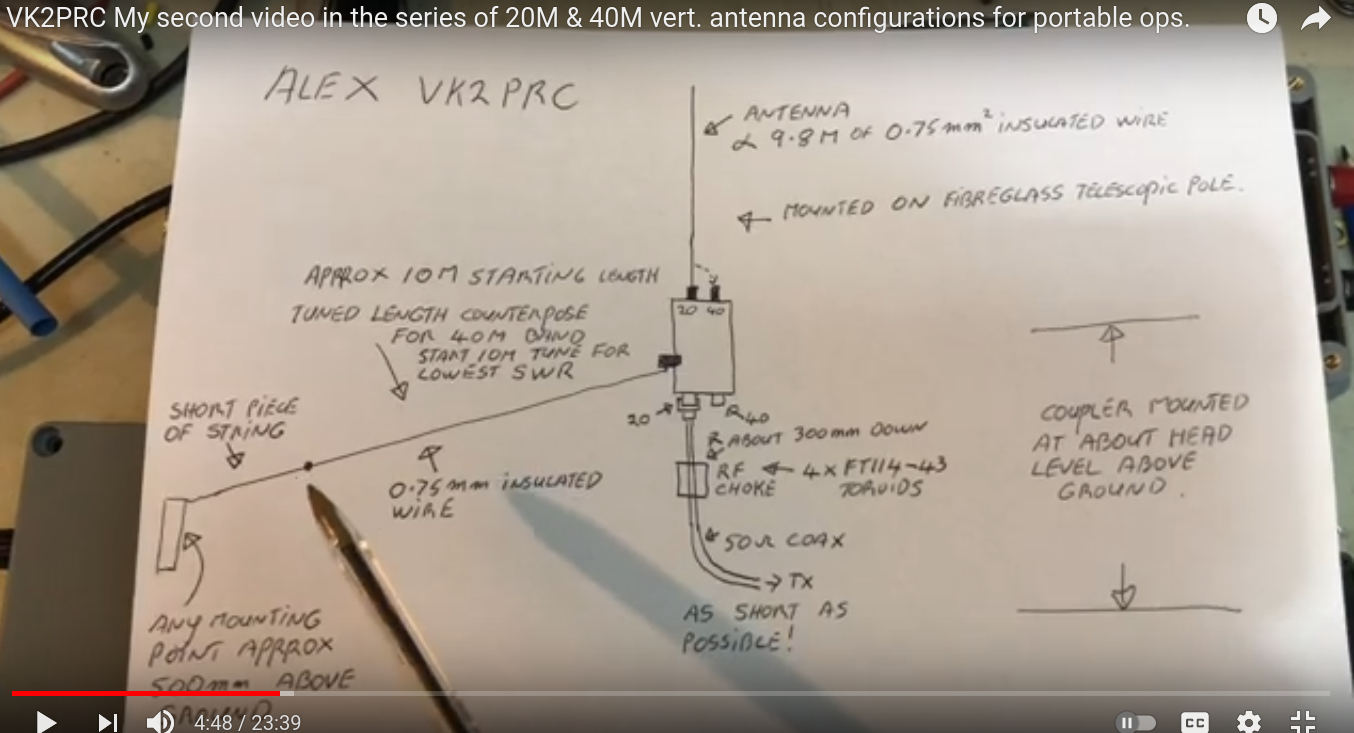 VK2PRC My second video in the series of 20M & 40M vert. antenna configurations for portable ops.
ALEX VK2PRC
ANTENNA
9.8M OF 0.75mm² INSULATED WIRE
MOUNTED ON FIBREGLASS TELESCOPIC POLE.
APPROX 10M STARTING LENGTH
TUNED LENGTH COUNTERPOSE
FOR 40M BAND
START 10M TUNE FOR
LOWEST SWR
20 40
SHORT PIECE
OF STRING
20
40
ABOUT 300mm DOWN
RF
CHOKE
4 x FT114-43
TOROIDS
0.75mm INSULATED
WIRE
50Ω COAX
TX
AS SHORT AS
POSSIBLE!
COUPLER MOUNTED
AT ABOUT HEAD
LEVEL ABOVE
GROUND.
ANY MOUNTING
POINT APPROX
500mm ABOVE
GROUND
4:48 / 23:39
CC